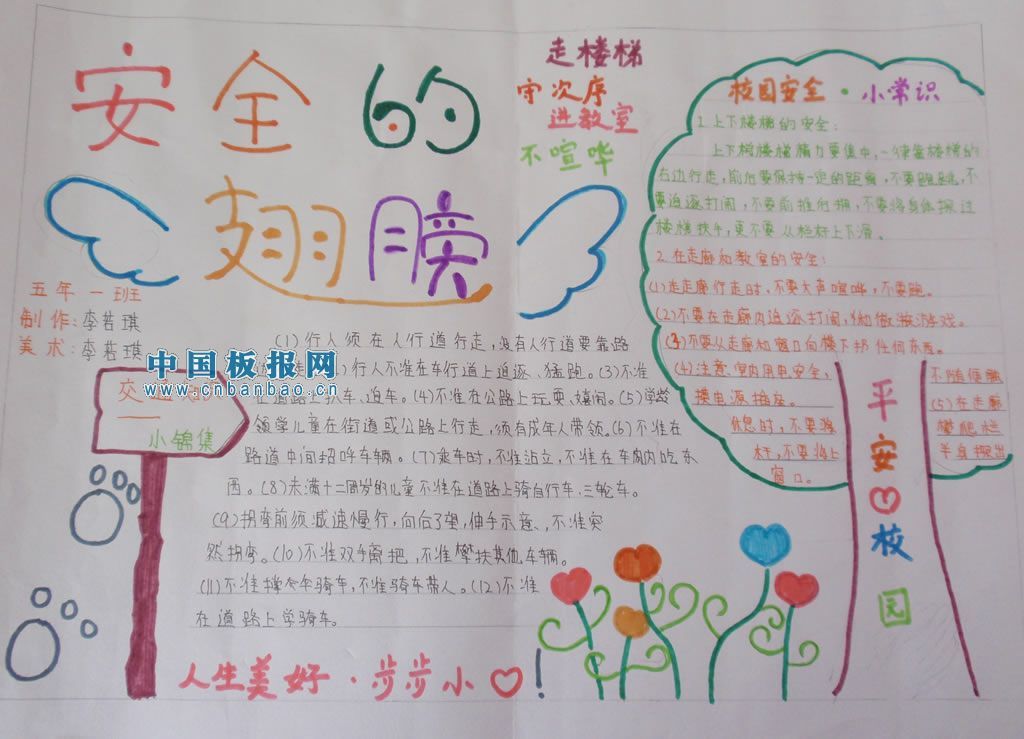 安全的
翅膀
走楼梯
守次序
进教室
不喧哗
五年一班
制作:李若琪
美术:李若琪
中国板报网
www.cnbanbao.cn
小锦集
(1)行人须在人行道行走,没有人行道要靠路
行人不准在车行道上追逐、猛跑。(3)不准
在道路上扒车、追车。(4)不准在公路上玩耍、嬉闹。(5)学龄
领学儿童在街道或公路上行走,须有成年人带领。(6)不准在
路道中间招呼车辆。(7)乘车时,不准站立,不准在车厢内吃东
西。(8)未满十二周岁的儿童不准在道路上骑自行车、三轮车。
(9)拐弯前须减速慢行,向后了望,伸手示意、,不准突
然拐弯。(10)不准双手离把,不准攀扶其他车辆。
(11)不准撑伞骑车,不准骑车带人。(12)不准
在道路上学骑车。
人生美好·步步小♡!
校园安全·小常识
1.上下楼梯的安全:
上下楼梯精力要集中,一律靠楼梯的
右边行走,前后要保持一定的距离,不要跑跳,不
要追逐打闹,不要前推后拥,不要将身体探过
楼梯扶手,更不要从栏杆上下滑。
2.在走廊和教室的安全:
(1)走走廊行走时,不要大声喧哗,不要跑。
(2)不要在走廊内追逐打闹,做激游戏。
(3)不要从走廊和窗口向楼下扔任何东西。
(4)注意室内用电安全,
不随便触
摸电源插座。
(5)在走廊
休息时,不要
攀爬栏
杆,不要将上
半身探出
窗口。
平安♡校园